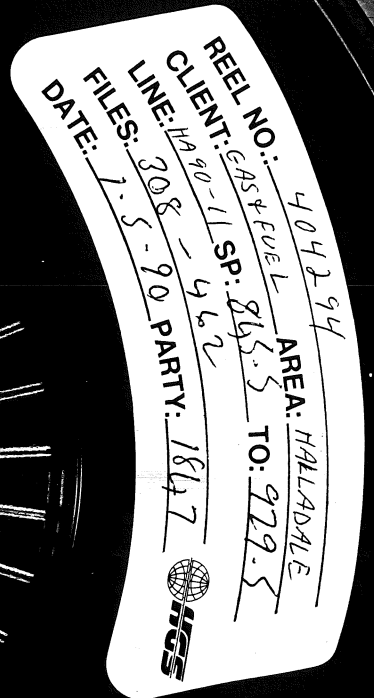 REEL NO.: 404294
CLIENT: GAS & FUEL AREA: HALLADALE
LINE: HA90-11 SP: 845.5 TO: 929.5
FILES: 308 - 462
DATE: 7-5-90 PARTY: 1847
HGS